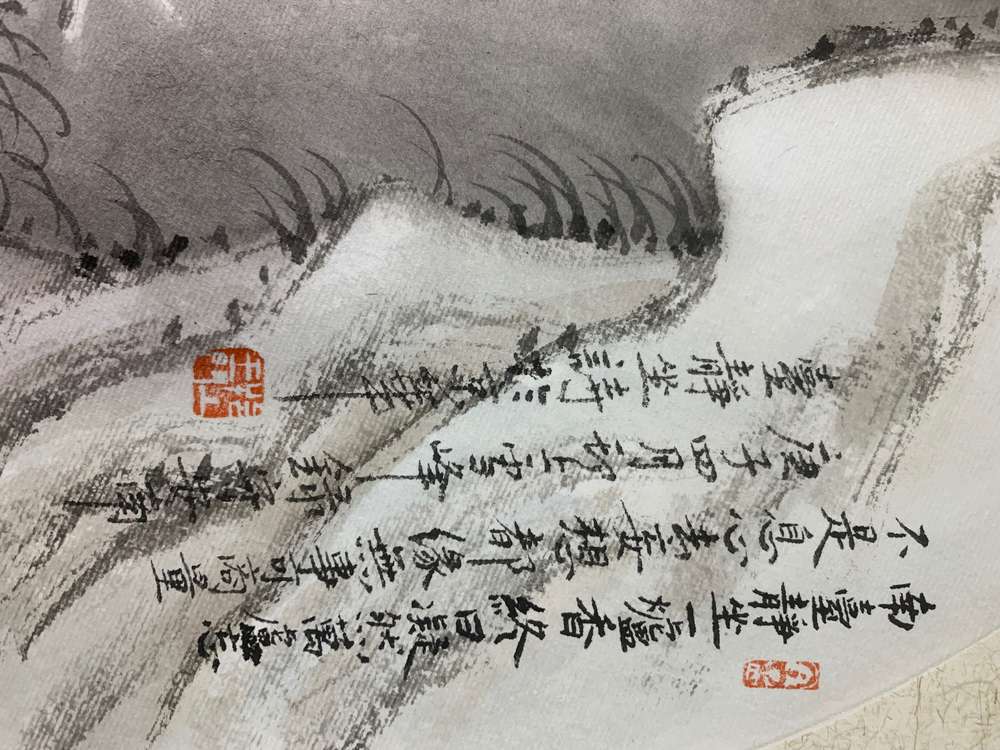 南臺靜坐一爐香終日凝然萬慮忘
不是息心去妄想都緣無事可商量
庚子四月初雪峰守安南
臺靜坐詩於京華